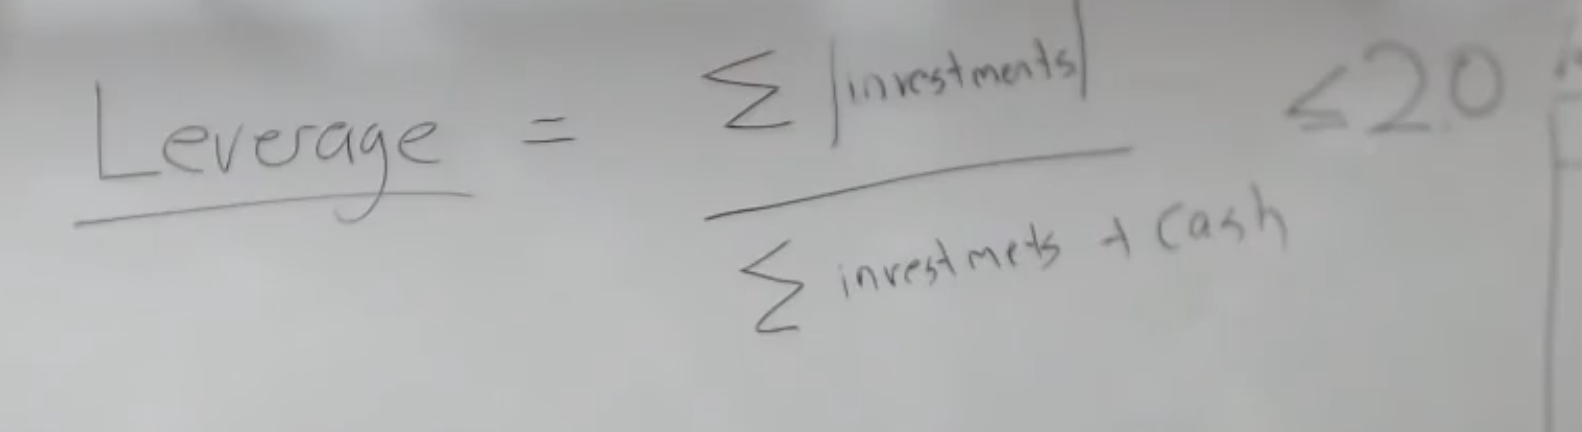 Leverage = Σ |investments| ≤ 2.0
Σ investmets + Cash